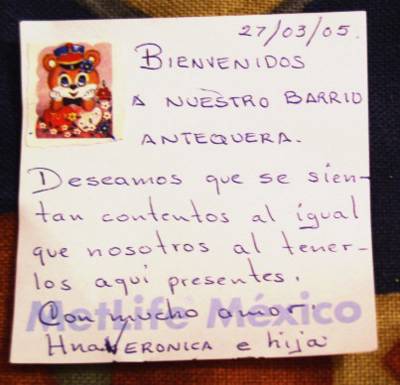 27/03/05.
BIENVENIDOS
A NUESTRO BARRIO
ANTEQUERA.
Deseamos que se sien-
tan contentos al igual
que nosotros al tener-
los aquí presentes.
Con mucho amor.
MetLife México
Hna VERONICA e hija